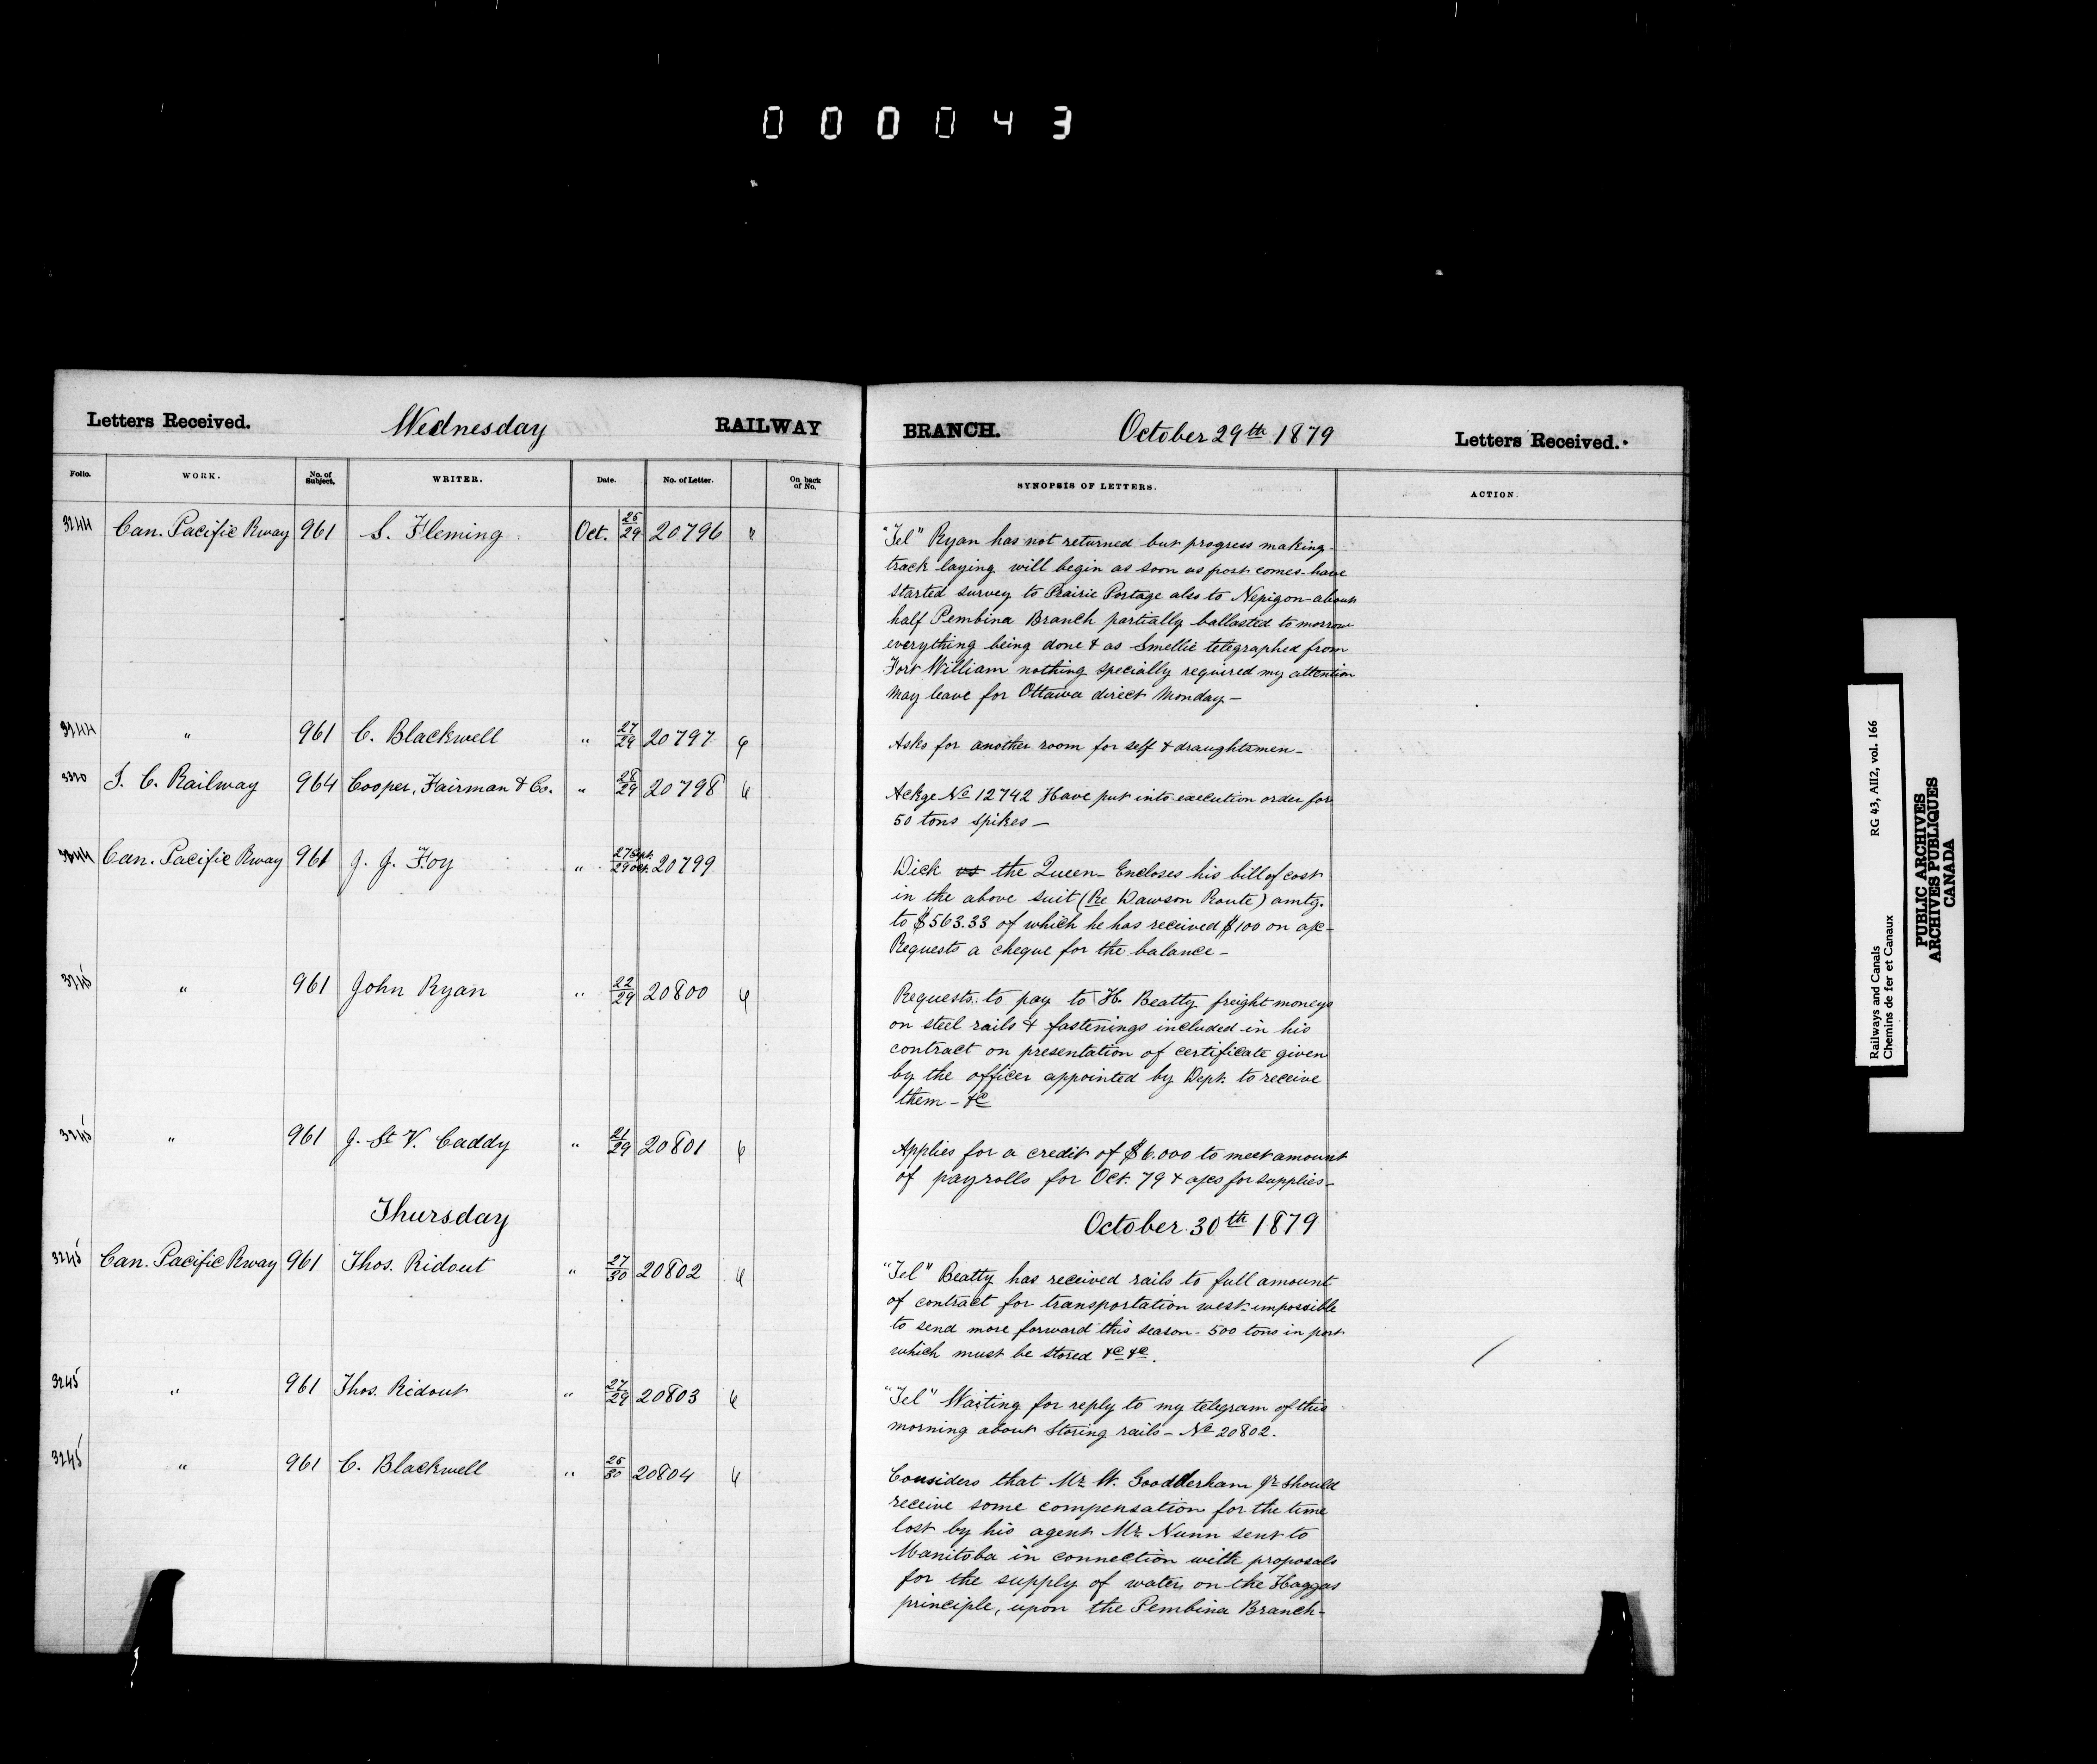 000043
Letters Received. Wednesday RAILWAY BRANCH. October 29th 1879 Letters Received.
Folio. WORK. No. of Subject. WRITER. Date. No. of Letter. On back of No. SYNOPSIS OF LETTERS. ACTION.
3244 Can. Pacific Rway 961 S. Fleming Oct. 25/29 20796 "
"Tel" Ryan has not returned but progress making -
track laying will begin as soon as post comes - have
started survey to Prairie Portage also to Nepigon - about
half Pembina Branch partially ballasted to morrow
everything being done & as Smellie telegraphed from
Fort William nothing specially required my attention
may leave for Ottawa direct Monday -
3244 " 961 C. Blackwell " 27/29 20797
Asks for another room for self & draughtsmen -
3320 I. C. Railway 964 Cooper, Fairman & Co. " 28/29 20798
Ackge No 12742 Have put into execution order for
50 tons spikes -
3244 Can. Pacific Rway 961 J. J. Foy " 27 Sept./29 Oct. 20799
Dick vs the Queen - Encloses his bill of cost
in the above suit (Re Dawson Route) amtg.
to $563.33 of which he has received $100 on a/c -
Requests a cheque for the balance -
3245 " 961 John Ryan " 22/29 20800
Requests to pay to H. Beatty freight moneys
on steel rails & fastenings included in his
contract on presentation of certificate given
by the officer appointed by Dept. to receive
them - &c
3245 " 961 J. St V. Caddy " 21/29 20801
Applies for a credit of $6.000 to meet amount
of payrolls for Oct. 79 & a/cs for supplies -
Thursday October 30th 1879
3245 Can. Pacific Rway 961 Thos. Ridout " 27/30 20802
"Tel" Beatty has received rails to full amount
of contract for transportation west - impossible
to send more forward this season - 500 tons in port
which must be stored &c &c.
3245 " 961 Thos. Ridout " 27/29 20803
"Tel" Waiting for reply to my telegram of this
morning about Storing rails - No 20802.
3245 " 961 C. Blackwell " 25/30 20804
Considers that Mr W. Goodderham Jr should
receive some compensation for the time
lost by his agent Mr Nunn sent to
Manitoba in connection with proposals
for the supply of water on the Haggas
principle, upon the Pembina Branch -
Railways and Canals RG 43, AII2, vol. 166
Chemins de fer et Canaux
PUBLIC ARCHIVES
ARCHIVES PUBLIQUES
CANADA